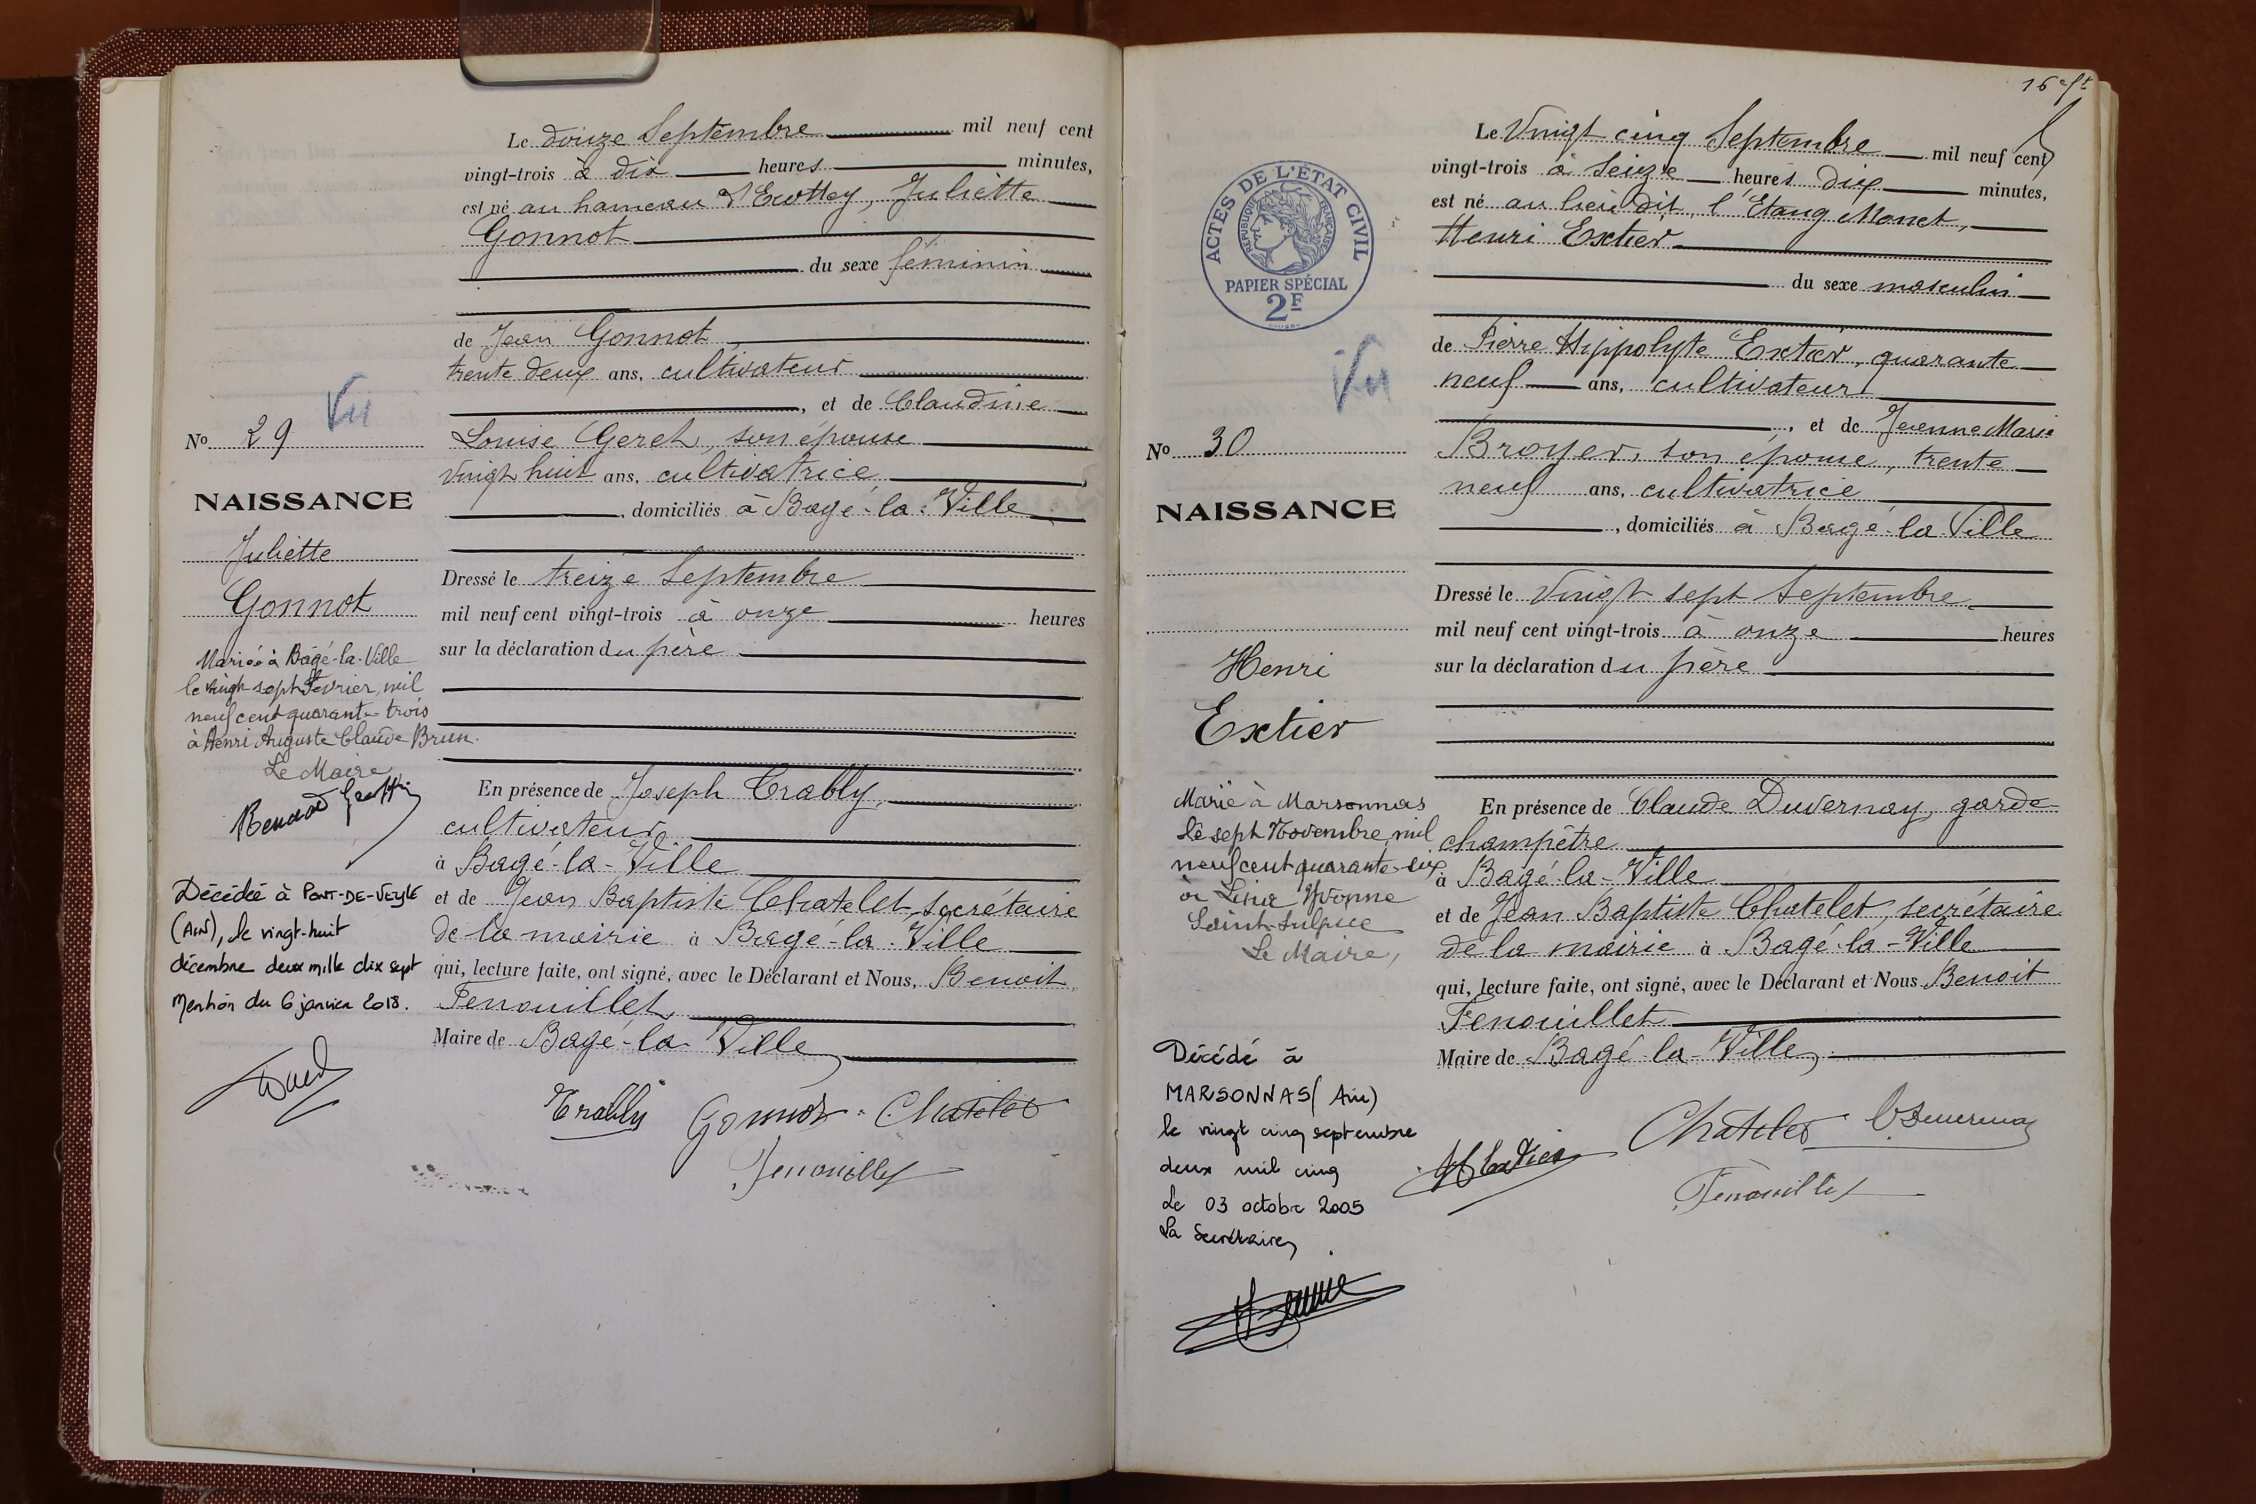 Le douze Septembre mil neuf cent
vingt-trois à dix heures minutes,
est né au hameau d'Ecottey, Juliette
Gonnot
du sexe féminin
de Jean Gonnot,
trente deux ans, cultivateur
, et de Claudine
Louise Geret, son épouse
vingt huit ans, cultivatrice
, domiciliés à Bagé-la-Ville
Dressé le treize Septembre
mil neuf cent vingt-trois à onze heures
sur la déclaration du père
En présence de Joseph Trably,
cultivateur
à Bagé-la-Ville
et de Jean Baptiste Chatelet, secrétaire
de la mairie à Bagé-la-Ville
qui, lecture faite, ont signé, avec le Déclarant et Nous, Benoit
Fenouillet,
Maire de Bagé-la-Ville,
Trably Gonnot Chatelet
Fenouillet
Vu
No 29
NAISSANCE
Juliette
Gonnot
Mariée à Bâgé-la-Ville
le vingt sept Février, mil
neuf cent quarante-trois
à Henri Auguste Claude Brun.
Le Maire
Décédée à PONT-DE-VEYLE
(AIN), le vingt-huit
décembre deux mille dix sept
Mention du 6 janvier 2018.
16
Le Vingt cinq Septembre mil neuf cent
vingt-trois à seize heures dix minutes,
est né au lieu dit, l'Etang Monet,
Henri Extier
du sexe masculin
de Pierre Hippolyte Extier, quarante
neuf ans, cultivateur
, et de Jeanne Marie
Broyer, son épouse, trente
neuf ans, cultivatrice
, domiciliés à Bagé-la-Ville
Dressé le Vingt sept Septembre
mil neuf cent vingt-trois à onze heures
sur la déclaration du père
En présence de Claude Duvernay, garde
champêtre
à Bagé-la-Ville
et de Jean Baptiste Chatelet, secrétaire
de la mairie à Bagé-la-Ville
qui, lecture faite, ont signé, avec le Déclarant et Nous Benoit
Fenouillet
Maire de Bagé-la-Ville,
Chatelet
Fenouillet
ACTES DE L'ÉTAT CIVIL
RÉPUBLIQUE FRANÇAISE
PAPIER SPÉCIAL
2F
Vu
No 30
NAISSANCE
Henri
Extier
Marié à Marsonnas
le sept Novembre, mil
neuf cent quarante-six
à Lina Yvonne
Saint-Sulpice
Le Maire,
Décédé à
MARSONNAS (Ain)
le vingt cinq septembre
deux mil cinq
Le 03 octobre 2005
La Secrétaire,